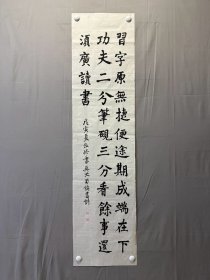 習字原無捷便途期成端在下
功夫二分筆硯三分看餘事還
須廣讀書